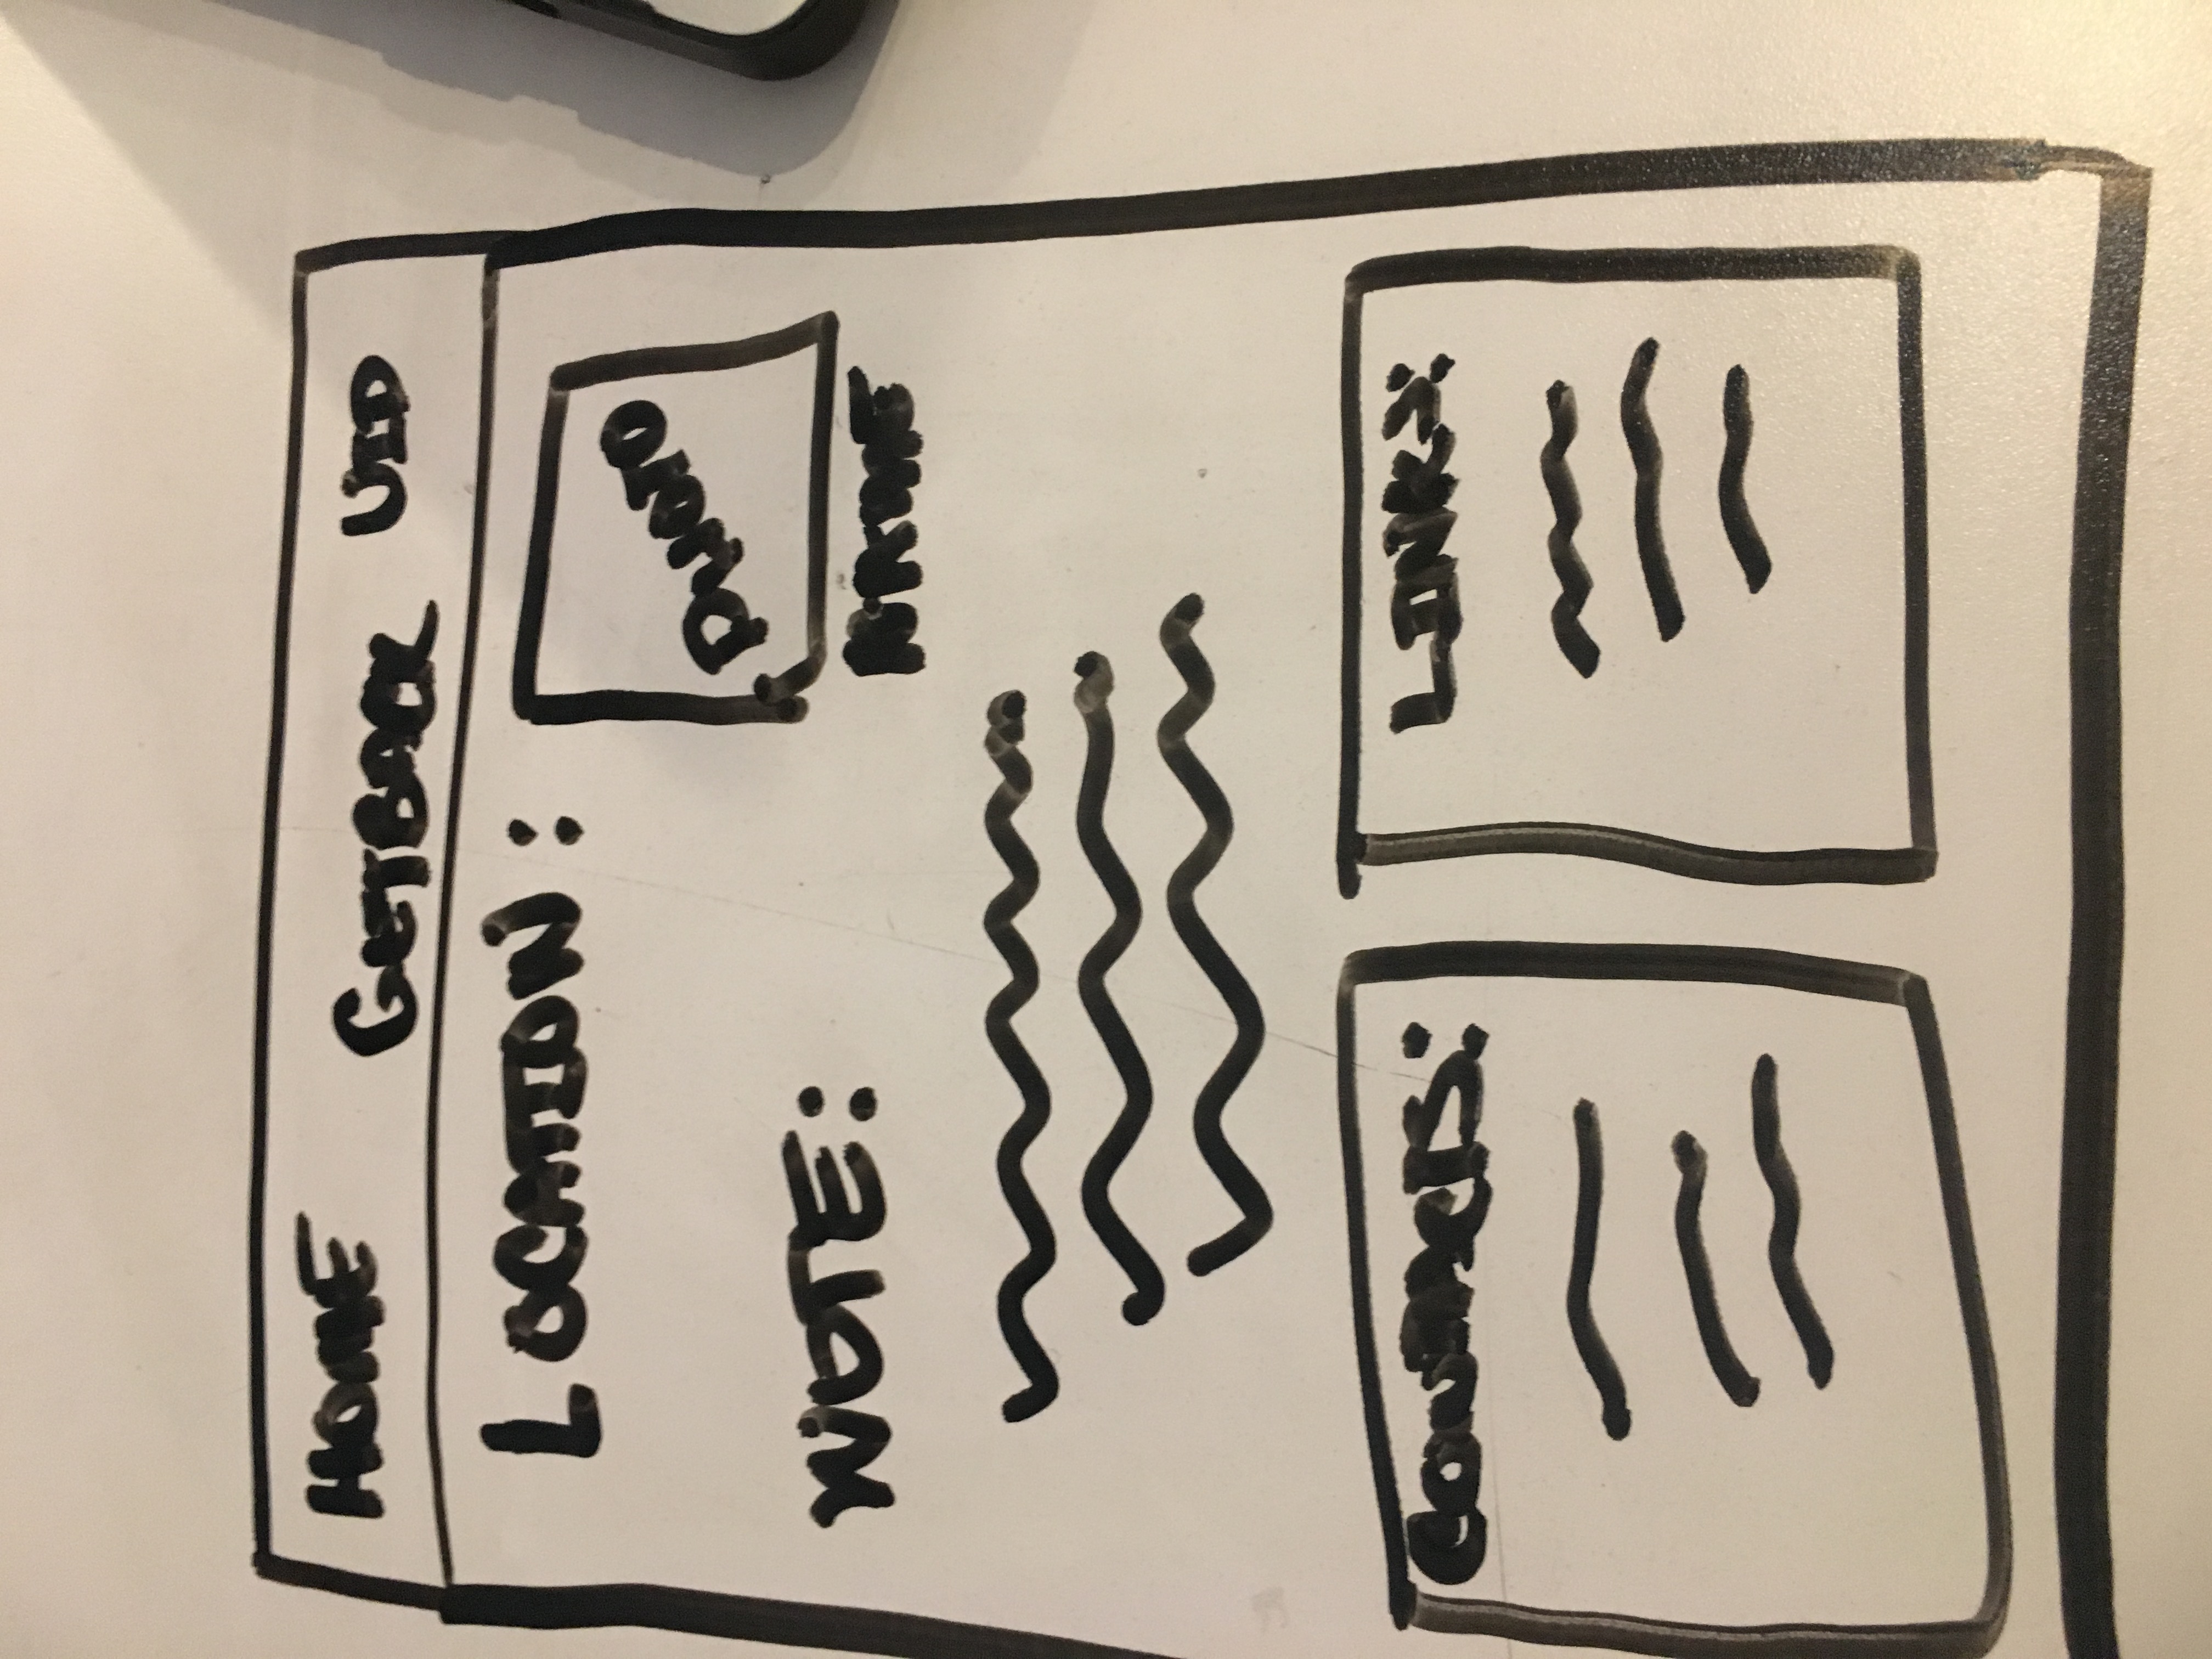 HOME GETBACK UID
LOCATION :
PHOTO
NAME
NOTE :
CONTACTS:
LINKS: